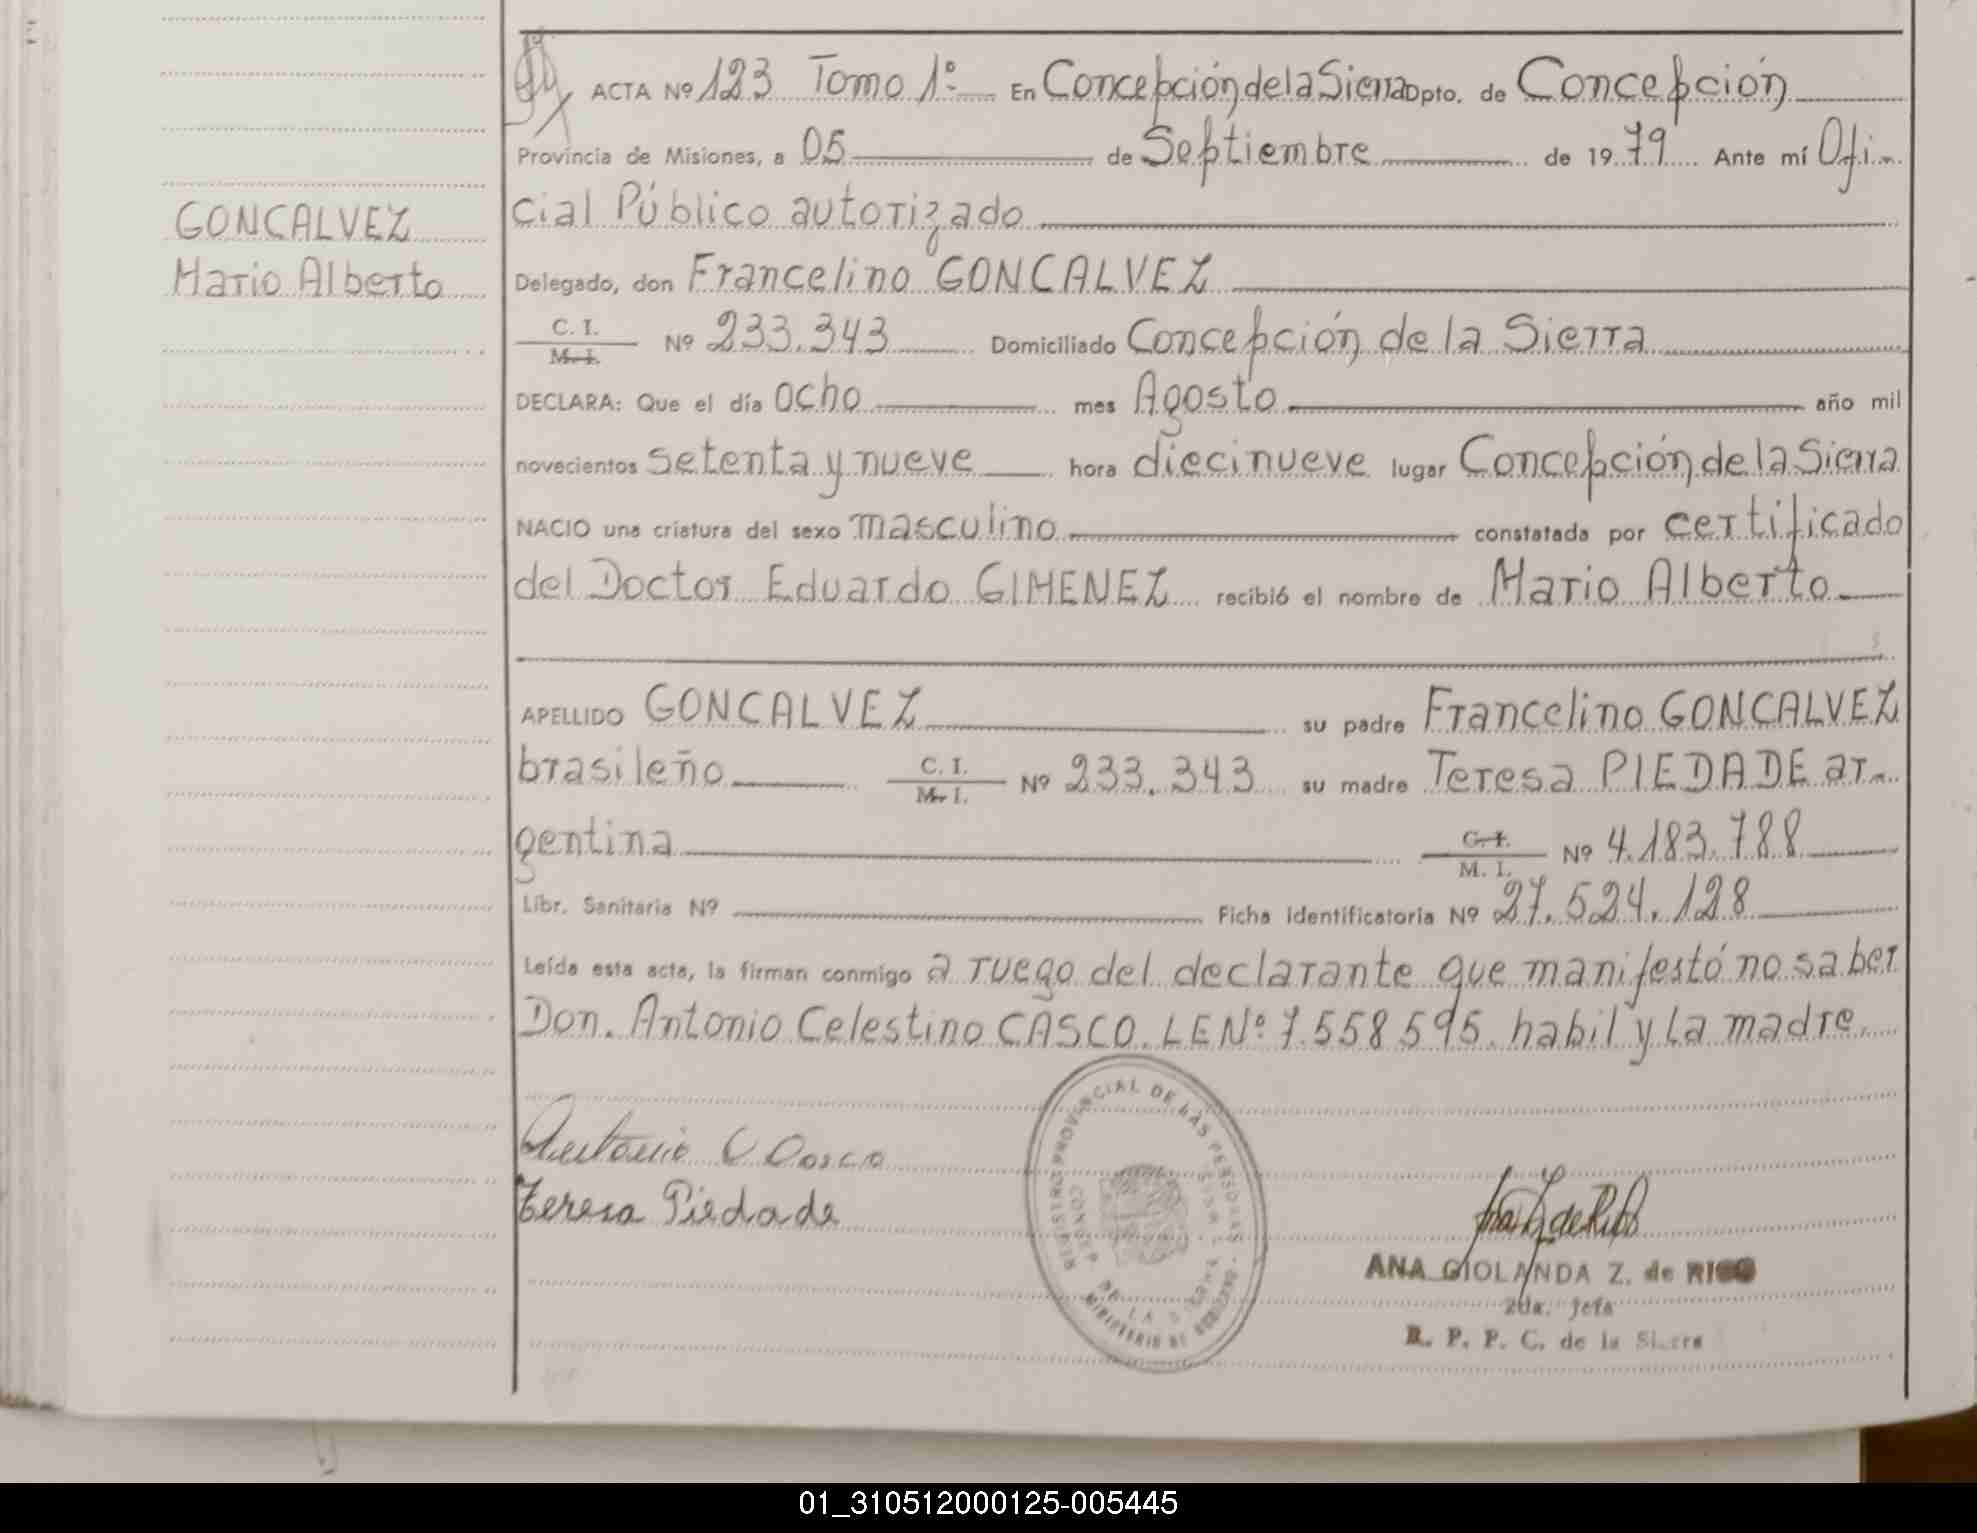 ACTA Nº 123 Tomo 1º En Concepción de la Sierra Dpto. de Concepción
Provincia de Misiones, a 05 de Septiembre de 1979 Ante mí Ofi-
cial Público autorizado
GONCALVEZ
Mario Alberto
Delegado, don Francelino GONCALVEZ
C. I.
M. I.
Nº 233.343 Domiciliado Concepción de la Sierra
DECLARA: Que el día ocho mes Agosto año mil
novecientos setenta y nueve hora diecinueve lugar Concepción de la Sierra
NACIO una criatura del sexo masculino constatada por certificado
del Doctor Eduardo GIMENEZ recibió el nombre de Mario Alberto
APELLIDO GONCALVEZ su padre Francelino GONCALVEZ
brasileño C. I. M. I. Nº 233.343 su madre Teresa PIEDADE ar-
gentina C. I. M. I. Nº 4.183.788
Libr. Sanitaria Nº Ficha Identificatoria Nº 27.524.128
Leída esta acta, la firman conmigo a ruego del declarante que manifestó no saber
Don. Antonio Celestino CASCO. LE Nº 7.558595. habil y la madre.
Antonio C Casco
Teresa Piedade
REGISTRO PROVINCIAL DE LAS PERSONAS
CONCEP. DE LA SIERRA
MINISTERIO DE GOBIERNO
ANA GIOLANDA Z. de RICO
2da. Jefa
R. P. P. C. de la Sierra
01_310512000125-005445